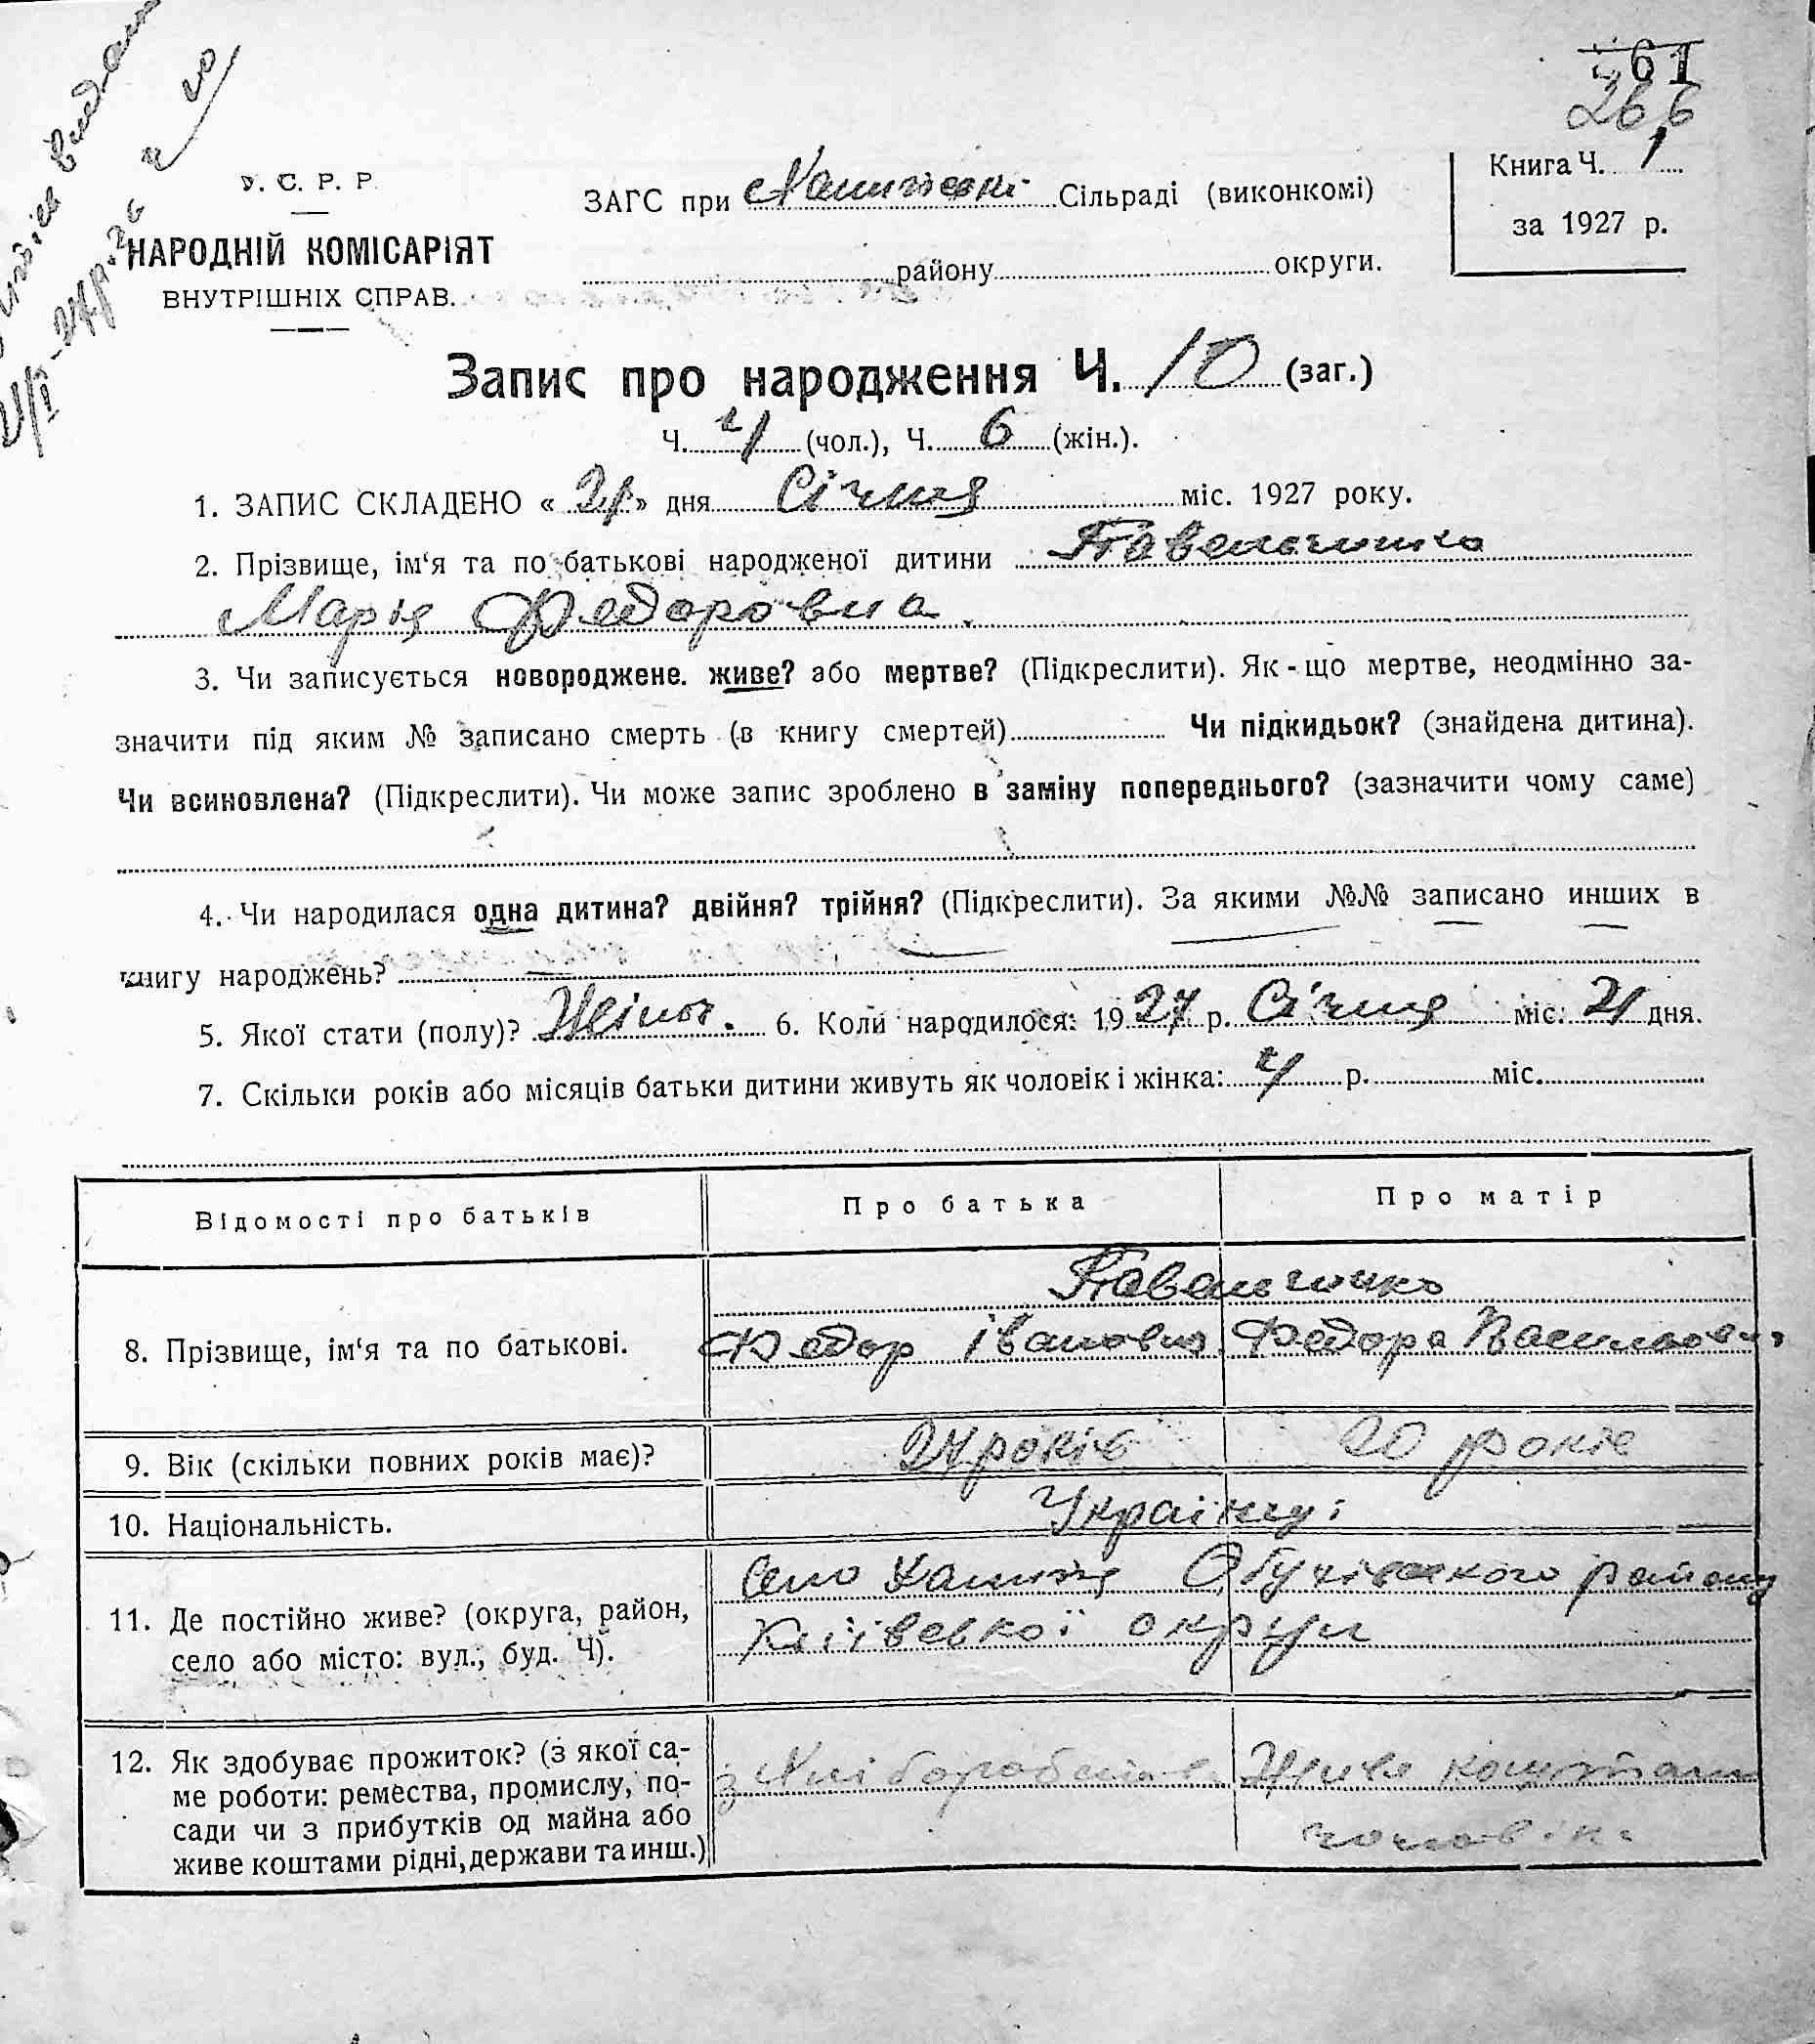 61
266
У. С. Р. Р.
НАРОДНІЙ КОМІСАРІЯТ
ВНУТРІШНІХ СПРАВ.
ЗАГС при Сільраді (виконкомі)
району округи.
Книга Ч. 1
за 1927 р.
Запис про народження Ч. 10 (заг.)
Ч. 4 (чол.), Ч. 6 (жін.).
1. ЗАПИС СКЛАДЕНО « 21 » дня Січня міс. 1927 року.
2. Прізвище, ім'я та по батькові народженої дитини Павельчишко
Марія Федоровна.
3. Чи записується новороджене. живе? або мертве? (Підкреслити). Як-що мертве, неодмінно за-
значити під яким № записано смерть (в книгу смертей) Чи підкидьок? (знайдена дитина).
Чи всиновлена? (Підкреслити). Чи може запис зроблено в заміну попереднього? (зазначити чому саме)
4. Чи народилася одна дитина? двійня? трійня? (Підкреслити). За якими №№ записано инших в
книгу народжень?
5. Якої стати (полу)? Жіноч. 6. Коли народилося: 1927 р. Січня міс. 21 дня.
7. Скільки років або місяців батьки дитини живуть як чоловік і жінка: 4 р. міс.
Відомості про батьків Про батька Про матір
8. Прізвище, ім'я та по батькові. Павельчишко
Федор Іванович Федора Васильовн
9. Вік (скільки повних років має)? 24 років 20 років
10. Національність. Українці
11. Де постійно живе? (округа, район,
село або місто: вул., буд. Ч). Село Обухівського району
Київської округи
12. Як здобуває прожиток? (з якої са-
ме роботи: ремества, промислу, по-
сади чи з прибутків од майна або
живе коштами рідні, держави та инш.)
з хліборобства Живе коштами
чоловіка